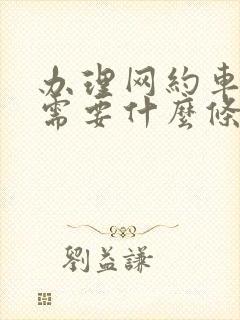 办理网約車
需要什麼條
劉益謙